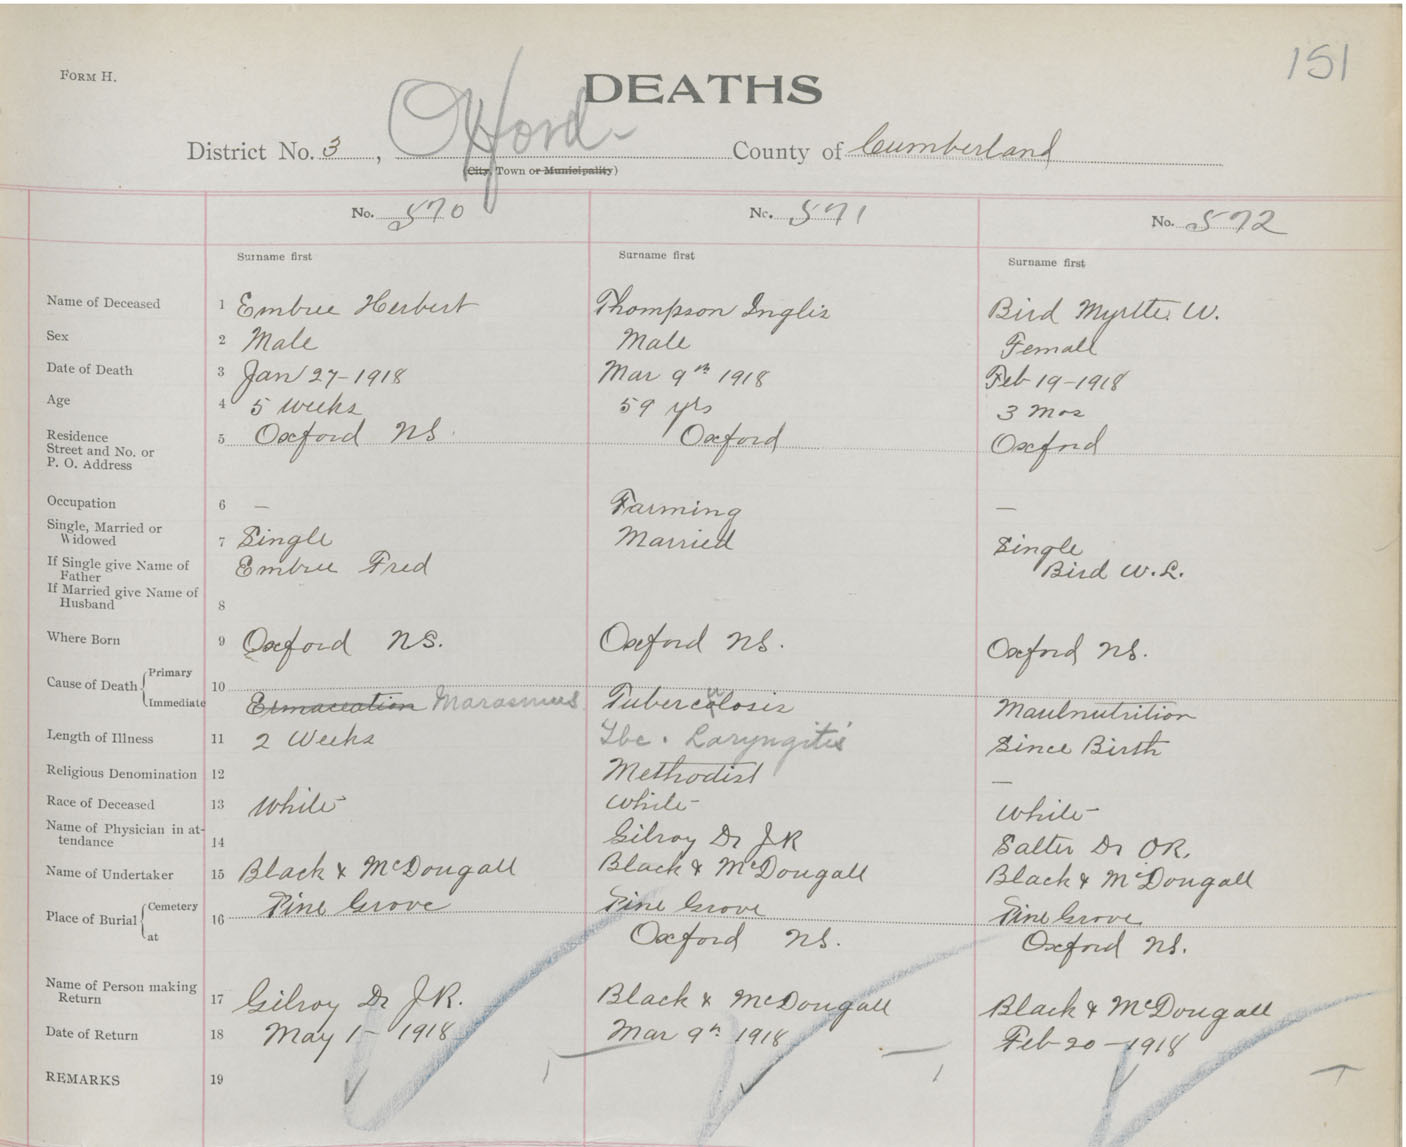 151
FORM H.
DEATHS
District No. 3, Oxford County of Cumberland
(City, Town or Municipality)
No. 570 No. 571 No. 572
Surname first Surname first Surname first
Name of Deceased 1 Embree Herbert Thompson Inglis Bird Myrtle W.
Sex 2 Male Male Female
Date of Death 3 Jan 27-1918 Mar 9th 1918 Feb 19-1918
Age 4 5 weeks 59 yrs 3 Mos
Residence 5 Oxford NS. Oxford Oxford
Street and No. or
P. O. Address
Occupation 6 — Farming —
Single, Married or
Widowed 7 Single Married Single
If Single give Name of Embree Fred Bird W.L.
Father
If Married give Name of
Husband 8
Where Born 9 Oxford NS. Oxford NS. Oxford NS.
Cause of Death Primary 10
Immediate Ermaceation Marasmus Tuberculosis Maulnutrition
Length of Illness 11 2 Weeks Tbc. Laryngitis Since Birth
Religious Denomination 12 Methodist —
Race of Deceased 13 White White White
Name of Physician in at-
tendance 14 Gilroy Dr J R Salter Dr O R.
Name of Undertaker 15 Black & McDougall Black & McDougall Black & McDougall
Place of Burial Cemetery 16 Pine Grove Pine Grove Pine Grove
at Oxford NS. Oxford NS.
Name of Person making
Return 17 Gilroy Dr J.R. Black & McDougall Black & McDougall
Date of Return 18 May 1- 1918 Mar 9th 1918 Feb 20-1918
REMARKS 19